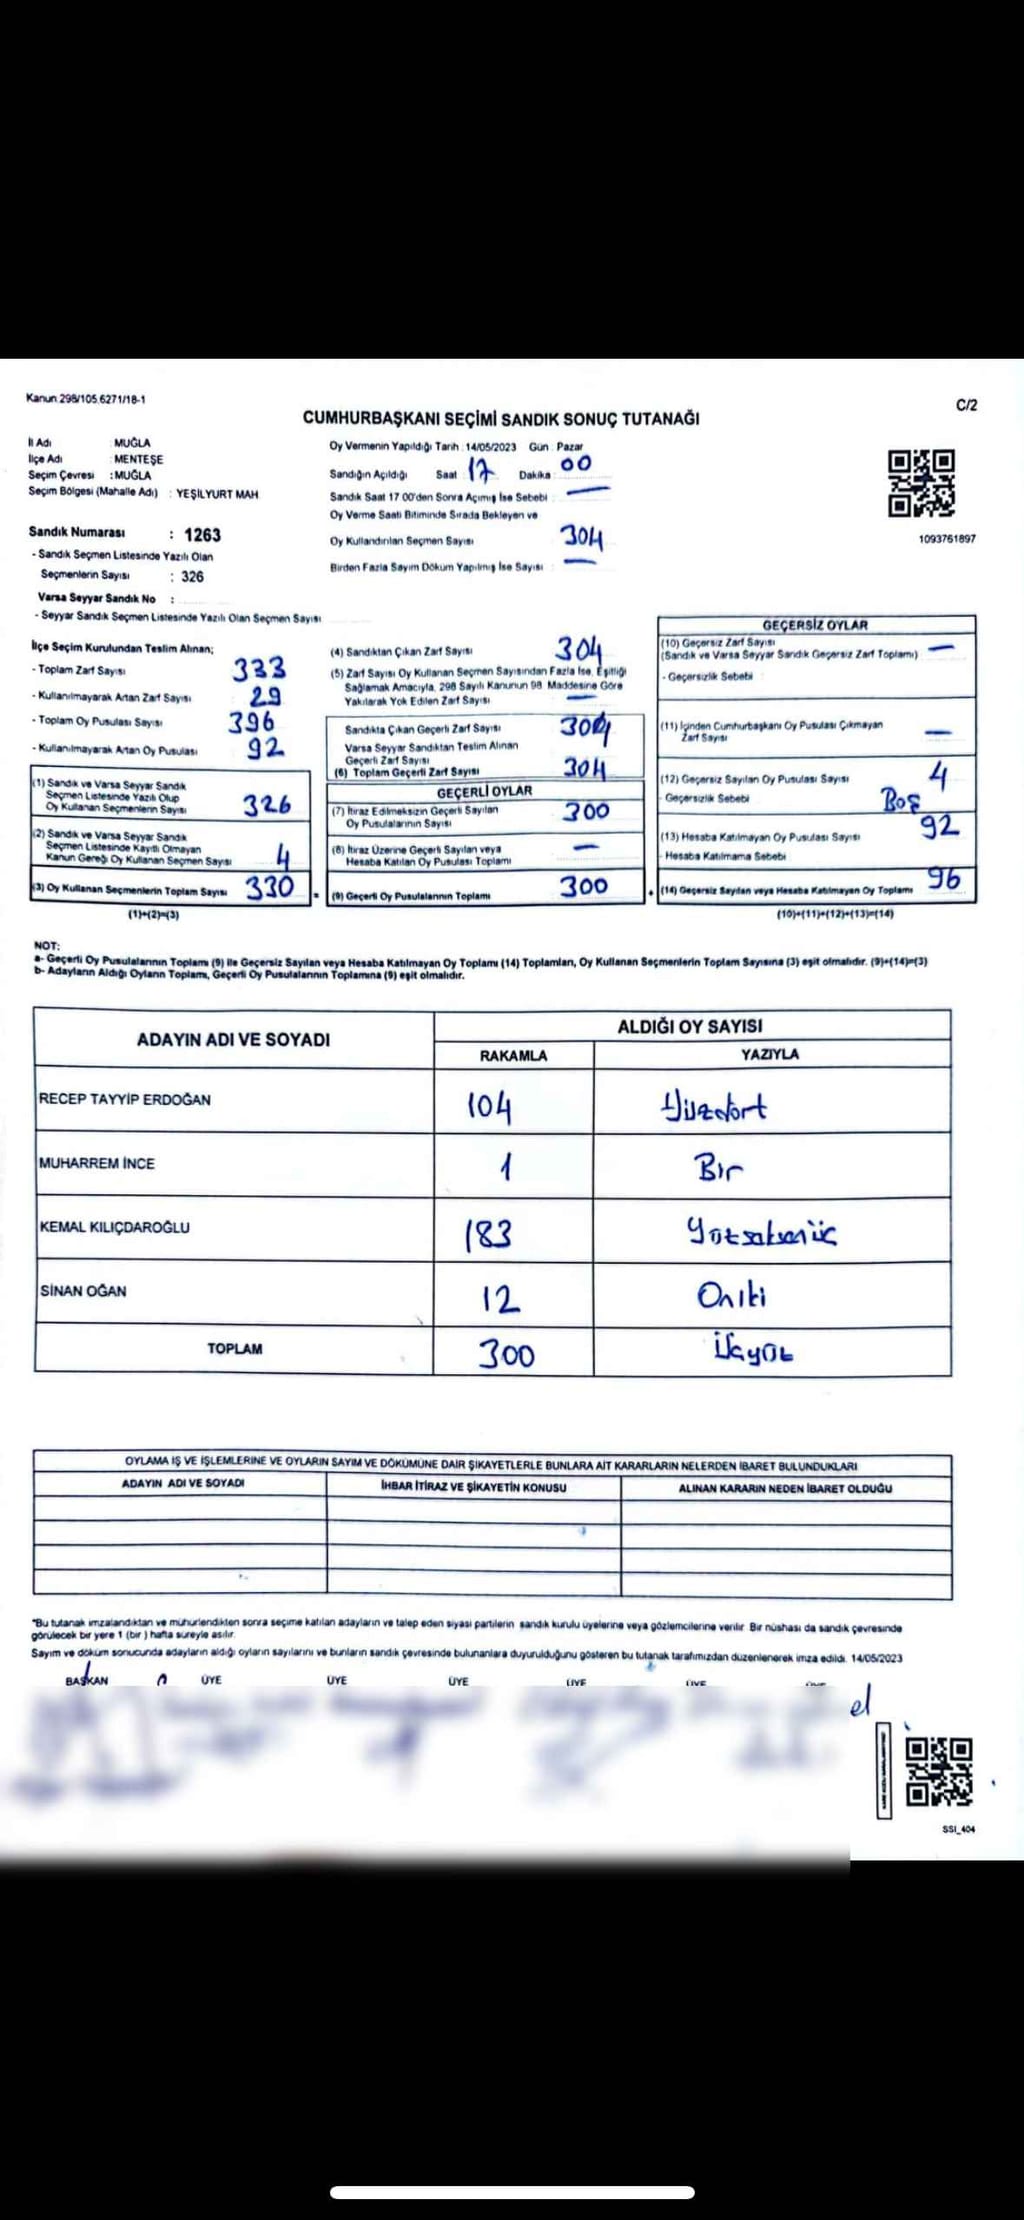 Kanun 298/105,6271/18-1
C/2
CUMHURBAŞKANI SEÇİMİ SANDIK SONUÇ TUTANAĞI
İl Adı : MUĞLA
İlçe Adı : MENTEŞE
Seçim Çevresi : MUĞLA
Seçim Bölgesi (Mahalle Adı) : YEŞİLYURT MAH
Sandık Numarası : 1263
- Sandık Seçmen Listesinde Yazılı Olan
Seçmenlerin Sayısı : 326
Varsa Seyyar Sandık No :
- Seyyar Sandık Seçmen Listesinde Yazılı Olan Seçmen Sayısı
Oy Vermenin Yapıldığı Tarih : 14/05/2023 Gün : Pazar
Sandığın Açıldığı Saat : 17 Dakika : 00
Sandık Saat 17 00'den Sonra Açımış İse Sebebi : —
Oy Verme Saati Bitiminde Sırada Bekleyen ve
Oy Kullandırılan Seçmen Sayısı 304
Birden Fazla Sayım Döküm Yapılmış İse Sayısı : —
1093761897
İlçe Seçim Kurulundan Teslim Alınan;
- Toplam Zarf Sayısı 333
- Kullanılmayarak Artan Zarf Sayısı 29
- Toplam Oy Pusulası Sayısı 396
- Kullanılmayarak Artan Oy Pusulası 92
(1) Sandık ve Varsa Seyyar Sandık
Seçmen Listesinde Yazılı Olup
Oy Kullanan Seçmenlerin Sayısı 326
(2) Sandık ve Varsa Seyyar Sandık
Seçmen Listesinde Kayıtlı Olmayan
Kanun Gereği Oy Kullanan Seçmen Sayısı 4
(3) Oy Kullanan Seçmenlerin Toplam Sayısı 330 =
(1)+(2)=(3)
(4) Sandıktan Çıkan Zarf Sayısı 304
(5) Zarf Sayısı Oy Kullanan Seçmen Sayısından Fazla İse, Eşitliği
Sağlamak Amacıyla, 298 Sayılı Kanunun 98. Maddesine Göre
Yakılarak Yok Edilen Zarf Sayısı —
Sandıkta Çıkan Geçerli Zarf Sayısı 304
Varsa Seyyar Sandıktan Teslim Alınan
Geçerli Zarf Sayısı
(6) Toplam Geçerli Zarf Sayısı 304
GEÇERLİ OYLAR
(7) İtiraz Edilmeksizin Geçerli Sayılan
Oy Pusulalarının Sayısı 300
(8) İtiraz Üzerine Geçerli Sayılan veya
Hesaba Katılan Oy Pusulası Toplamı —
(9) Geçerli Oy Pusulalarının Toplamı 300 +
GEÇERSİZ OYLAR
(10) Geçersiz Zarf Sayısı —
(Sandık ve Varsa Seyyar Sandık Geçersiz Zarf Toplamı)
- Geçersizlik Sebebi :
(11) İçinden Cumhurbaşkanı Oy Pusulası Çıkmayan
Zarf Sayısı —
(12) Geçersiz Sayılan Oy Pusulası Sayısı 4
- Geçersizlik Sebebi Boş
(13) Hesaba Katılmayan Oy Pusulası Sayısı 92
- Hesaba Katılmama Sebebi
(14) Geçersiz Sayılan veya Hesaba Katılmayan Oy Toplamı 96
(10)+(11)+(12)+(13)=(14)
NOT:
a- Geçerli Oy Pusulalarının Toplamı (9) ile Geçersiz Sayılan veya Hesaba Katılmayan Oy Toplamı (14) Toplamları, Oy Kullanan Seçmenlerin Toplam Sayısına (3) eşit olmalıdır. (9)+(14)=(3)
b- Adayların Aldığı Oyların Toplamı, Geçerli Oy Pusulalarının Toplamına (9) eşit olmalıdır.
ADAYIN ADI VE SOYADI
ALDIĞI OY SAYISI
RAKAMLA YAZIYLA
RECEP TAYYİP ERDOĞAN 104 Yüzdört
MUHARREM İNCE 1 Bir
KEMAL KILIÇDAROĞLU 183 Yüzseksenüç
SİNAN OĞAN 12 Oniki
TOPLAM 300 Üçyüz
OYLAMA İŞ VE İŞLEMLERİNE VE OYLARIN SAYIM VE DÖKÜMÜNE DAİR ŞİKAYETLERLE BUNLARA AİT KARARLARIN NELERDEN İBARET BULUNDUKLARI
ADAYIN ADI VE SOYADI İHBAR İTİRAZ VE ŞİKAYETİN KONUSU ALINAN KARARIN NEDEN İBARET OLDUĞU
*Bu tutanak imzalandıktan ve mühürlendikten sonra seçime katılan adayların ve talep eden siyasi partilerin sandık kurulu üyelerine veya gözlemcilerine verilir. Bir nüshası da sandık çevresinde
görülecek bir yere 1 (bir) hafta süreyle asılır.
Sayım ve döküm sonucunda adayların aldığı oyların sayılarını ve bunların sandık çevresinde bulunanlara duyurulduğunu gösteren bu tutanak tarafımızdan düzenlenerek imza edildi. 14/05/2023
BAŞKAN ÜYE ÜYE ÜYE ÜYE ÜYE
el
SSI_404